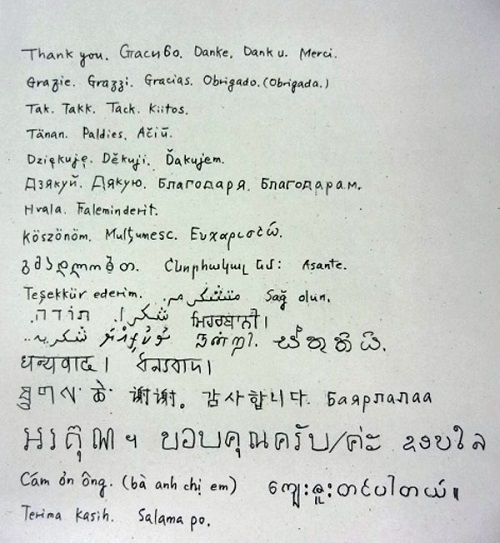 Thank you. Спасибо. Danke. Dank u. Merci.
Grazie. Grazzi. Gracias. Obrigado. (Obrigada.)
Tak. Takk. Tack. Kiitos.
Tänan. Paldies. Ačiū.
Dziękuję. Děkuji. Ďakujem.
Дзякуй. Дякую. Благодаря. Благодарам.
Hvala. Faleminderit.
Köszönöm. Mulţumesc. Ευχαριστώ.
გმადლობთ. Շնորհակալ եմ: Asante.
Teşekkür ederim. متشکرم. Sağ olun.
תודה. شكرا. ਮਿਹਰਬਾਨੀ।
شکریہ۔ நன்றி.
धन्यवाद। ধন্যবাদ।
谢谢。 감사합니다. Баярлалаа
អរគុណ។ ขอบคุณครับ/ค่ะ ຂອບໃຈ
Cám ơn ông. (bà anh chị em) ကျေးဇူးတင်ပါတယ်။
Terima kasih. Salama po.